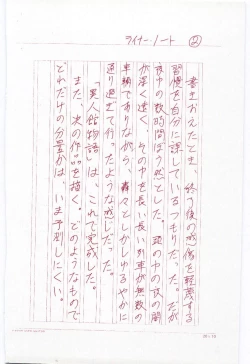 ライナー・ノート ②
書きおえたとき、終了後の感傷を軽蔑する
習慣を自分に課しているつもりだった。だが
夜中の数時間ぼう然とした。頭の中の夜の闇
が深く遠く、その中を長い長い列車が無数の
車輌でありながら、轟々としかしゆるやかに
通り過ぎて行ったような感じだった。
「異人館物語」は、これで完成した。
また、次の作品を描く。どのようなもので
どれだけの分量かは、いま予測しにくい。